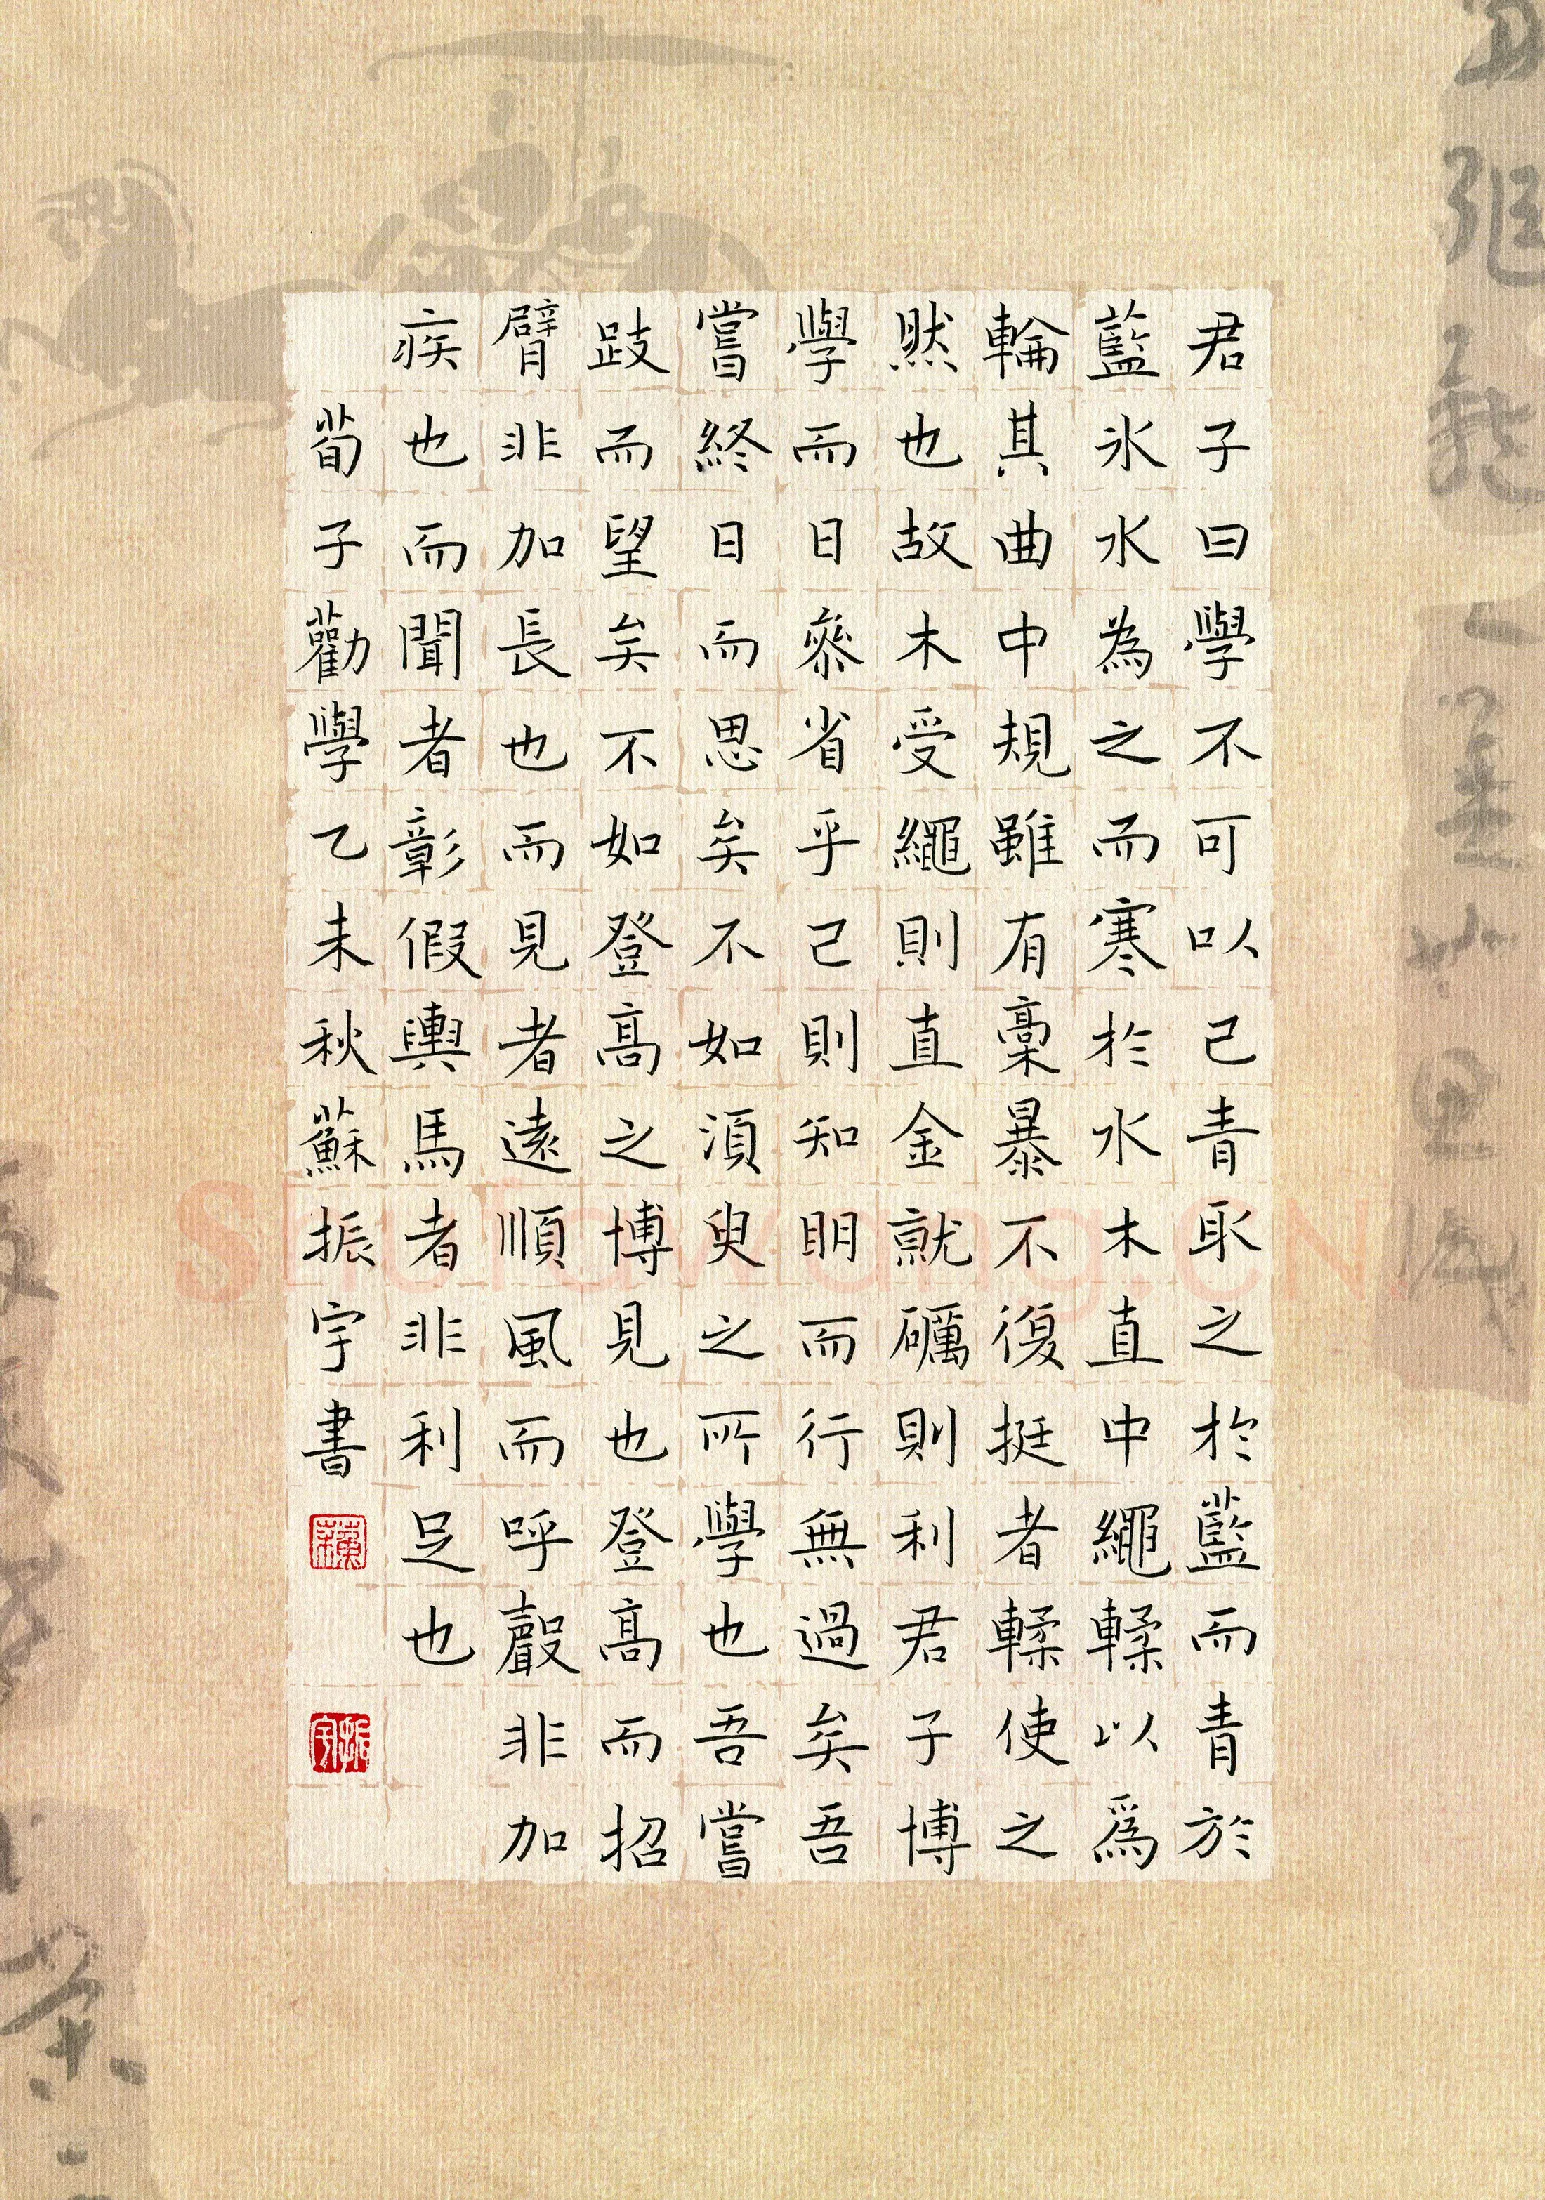 君子曰學不可以已青取之於藍而青於
藍冰水為之而寒於水木直中繩輮以爲
輪其曲中規雖有槀暴不復挺者輮使之
然也故木受繩則直金就礪則利君子博
學而日參省乎己則知明而行無過矣吾
嘗終日而思矣不如須臾之所學也吾嘗
跂而望矣不如登高之博見也登高而招
臂非加長也而見者遠順風而呼聲非加
疾也而聞者彰假輿馬者非利足也
荀子勸學乙未秋蘇振宇書
shufawang.cn